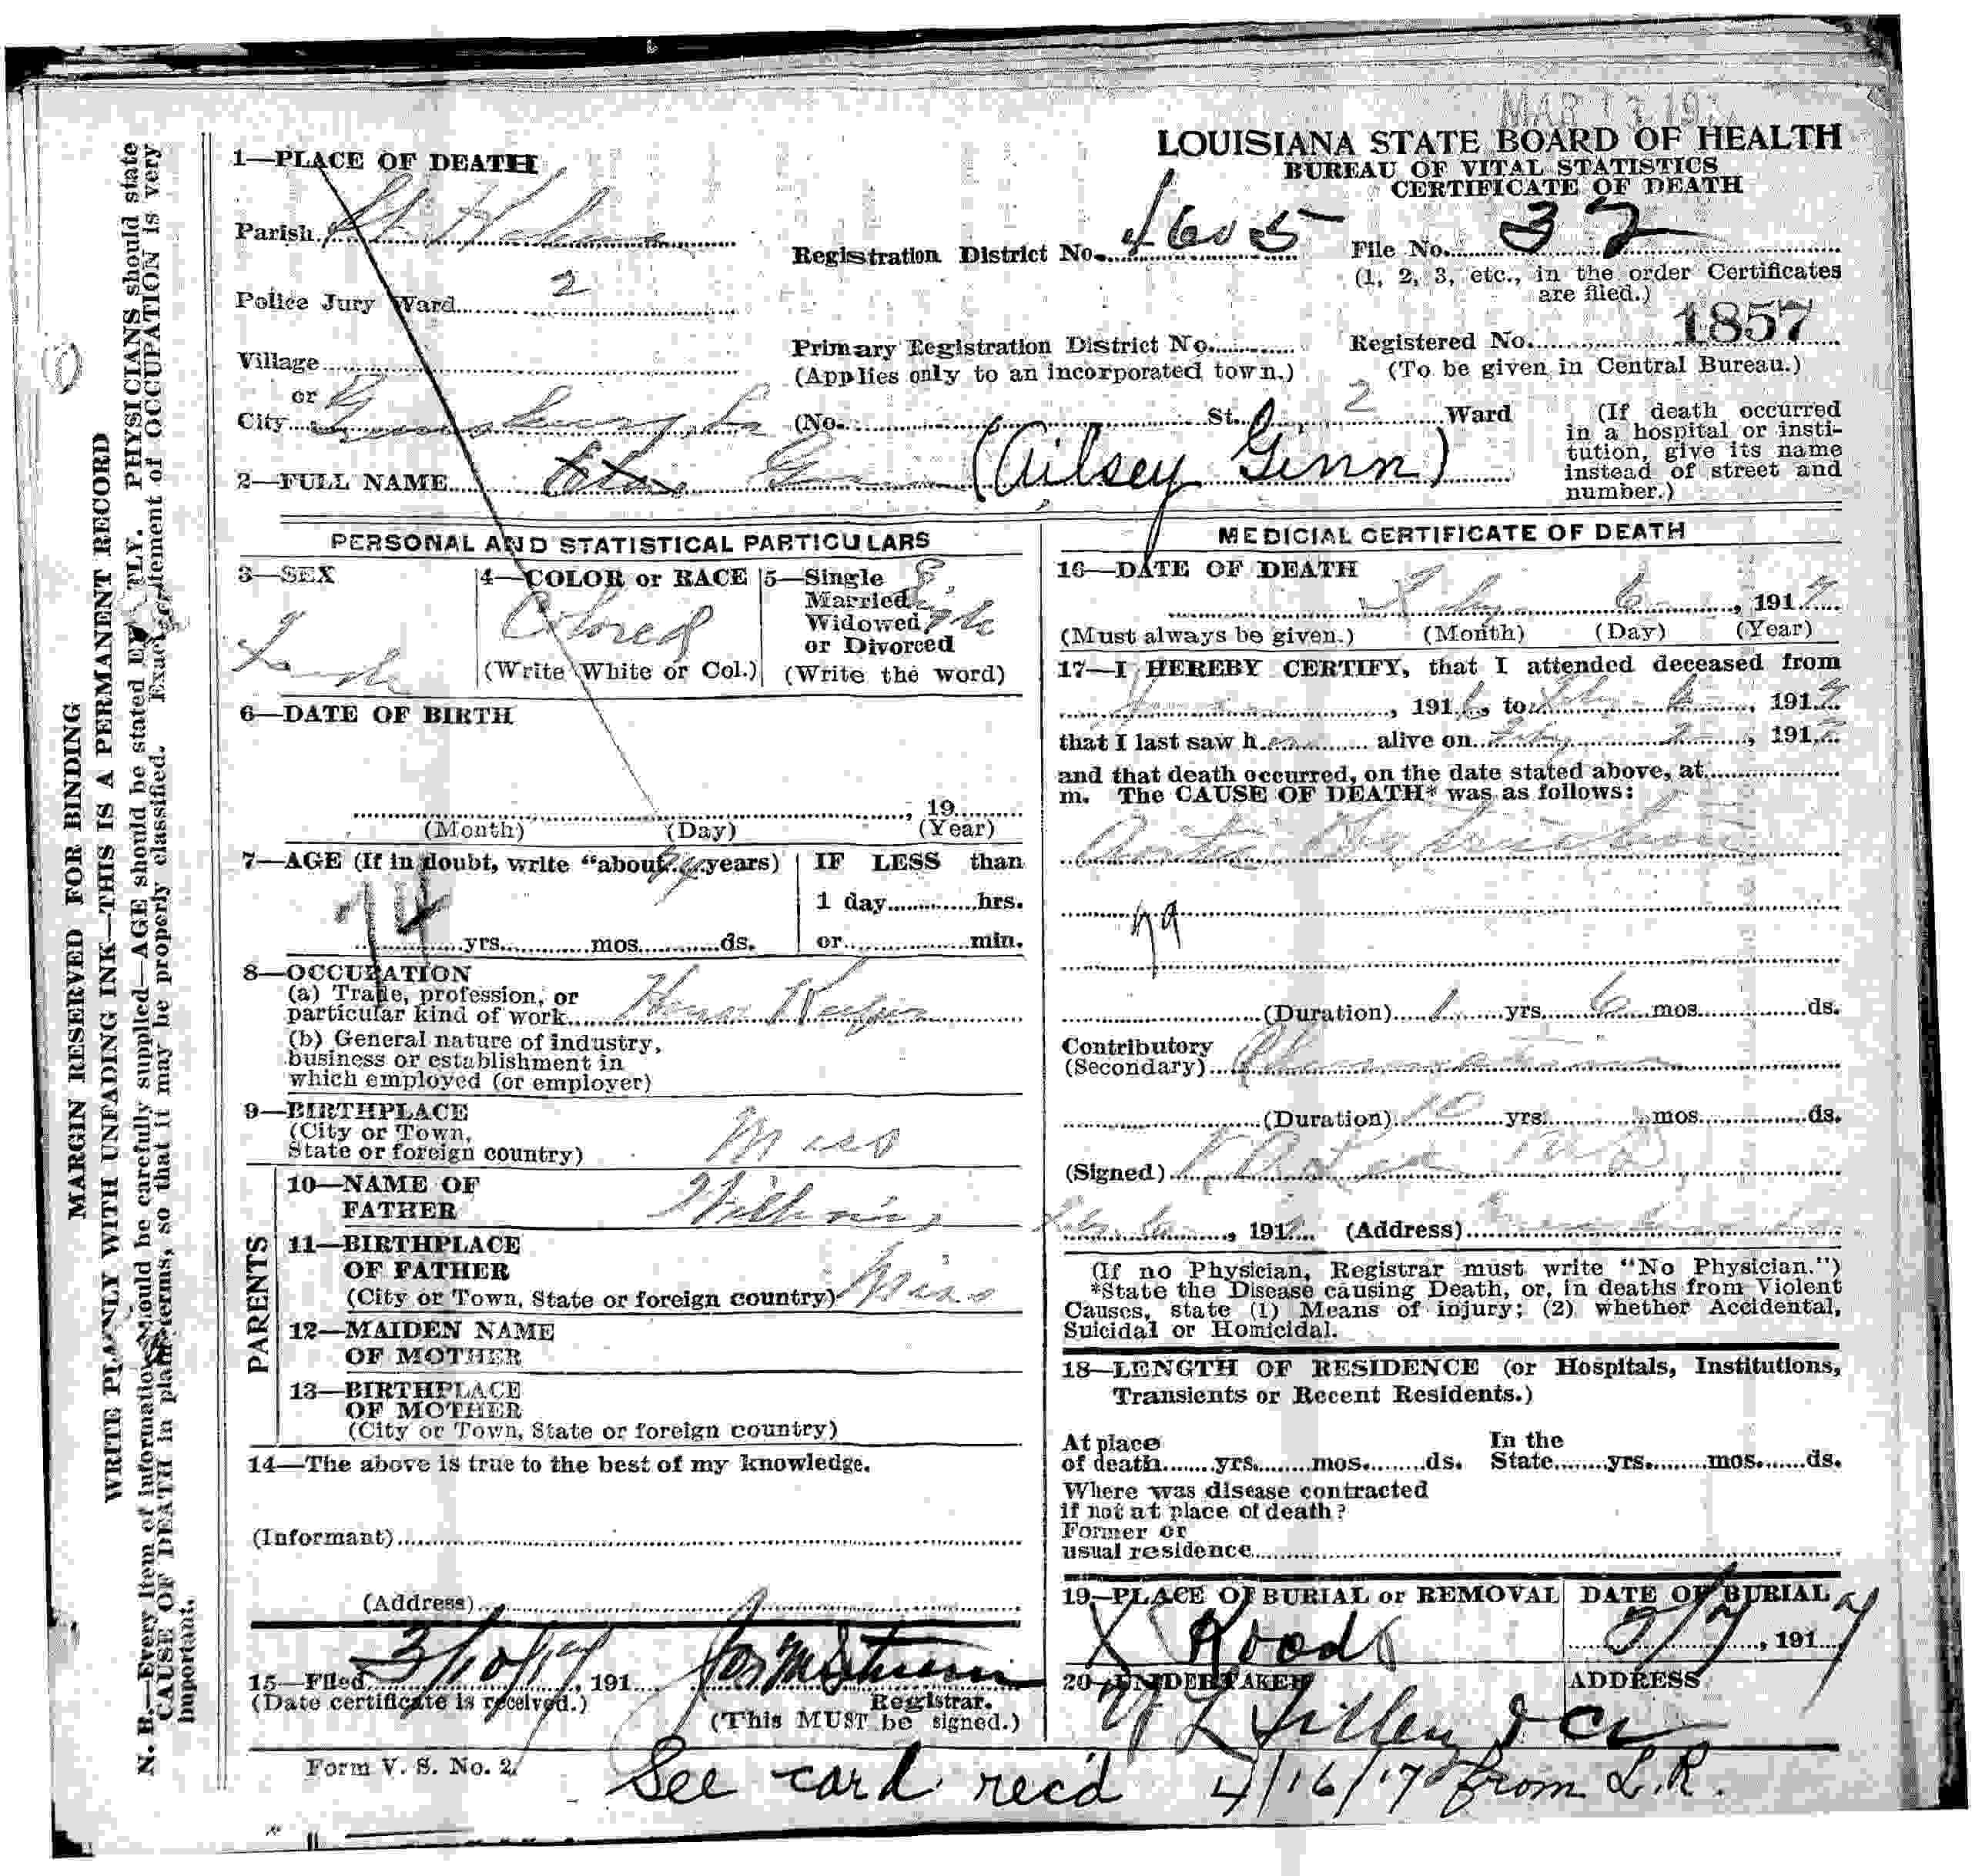 MAR 13 191
LOUISIANA STATE BOARD OF HEALTH
BUREAU OF VITAL STATISTICS
CERTIFICATE OF DEATH
1—PLACE OF DEATH
Parish St. Helena
Registration District No. 4605
File No. 32
(1, 2, 3, etc., in the order Certificates are filed.)
Police Jury Ward 2
Village
or
City Greensburg, La
Primary Registration District No.
(Applies only to an incorporated town.)
Registered No. 1857
(To be given in Central Bureau.)
(No. St., 2 Ward
(If death occurred
in a hospital or insti-
tution, give its name
instead of street and
number.)
2—FULL NAME (Ailsey Ginn)
PERSONAL AND STATISTICAL PARTICULARS
3—SEX
4—COLOR or RACE
Colored
(Write White or Col.)
5—Single
Married
Widowed
or Divorced
Single
(Write the word)
6—DATE OF BIRTH
, 19
(Month) (Day) (Year)
7—AGE (If in doubt, write “about 74 years)
74
yrs. mos. ds.
IF LESS than
1 day hrs.
or min.
8—OCCUPATION
(a) Trade, profession, or
particular kind of work House Keeper
(b) General nature of industry,
business or establishment in
which employed (or employer)
9—BIRTHPLACE
(City or Town,
State or foreign country) Miss
PARENTS
10—NAME OF
FATHER
11—BIRTHPLACE
OF FATHER
(City or Town, State or foreign country) Miss
12—MAIDEN NAME
OF MOTHER
13—BIRTHPLACE
OF MOTHER
(City or Town, State or foreign country)
14—The above is true to the best of my knowledge.
(Informant)
(Address)
15—Filed 3/10/17, 191
(Date certificate is received.)
Registrar.
(This MUST be signed.)
Form V. S. No. 2.
MEDICIAL CERTIFICATE OF DEATH
16—DATE OF DEATH
Feby 6, 1917
(Must always be given.) (Month) (Day) (Year)
17—I HEREBY CERTIFY, that I attended deceased from
, 1916, to Feby 6, 1917
that I last saw her alive on Feby 2, 1917
and that death occurred, on the date stated above, at
m. The CAUSE OF DEATH* was as follows:
Aortic
79
(Duration) 1 yrs. 6 mos. ds.
Contributory
(Secondary) Rheumatism
(Duration) 10 yrs. mos. ds.
(Signed) MD
, 1917 (Address) Greensburg
(If no Physician, Registrar must write “No Physician.”)
*State the Disease causing Death, or, in deaths from Violent
Causes, state (1) Means of injury; (2) whether Accidental,
Suicidal or Homicidal.
18—LENGTH OF RESIDENCE (or Hospitals, Institutions,
Transients or Recent Residents.)
At place
of death yrs. mos. ds.
In the
State yrs. mos. ds.
Where was disease contracted
if not at place of death?
Former or
usual residence
19—PLACE OF BURIAL or REMOVAL
X Roads
DATE OF BURIAL
2/7, 1917
20—UNDERTAKER
ADDRESS
See card rec'd 4/16/17 from L.R.
MARGIN RESERVED FOR BINDING
WRITE PLAINLY WITH UNFADING INK—THIS IS A PERMANENT RECORD
N. B.—Every item of information should be carefully supplied—AGE should be stated EXACTLY. PHYSICIANS should state
CAUSE OF DEATH in plain terms, so that it may be properly classified. Exact statement of OCCUPATION is very
important.